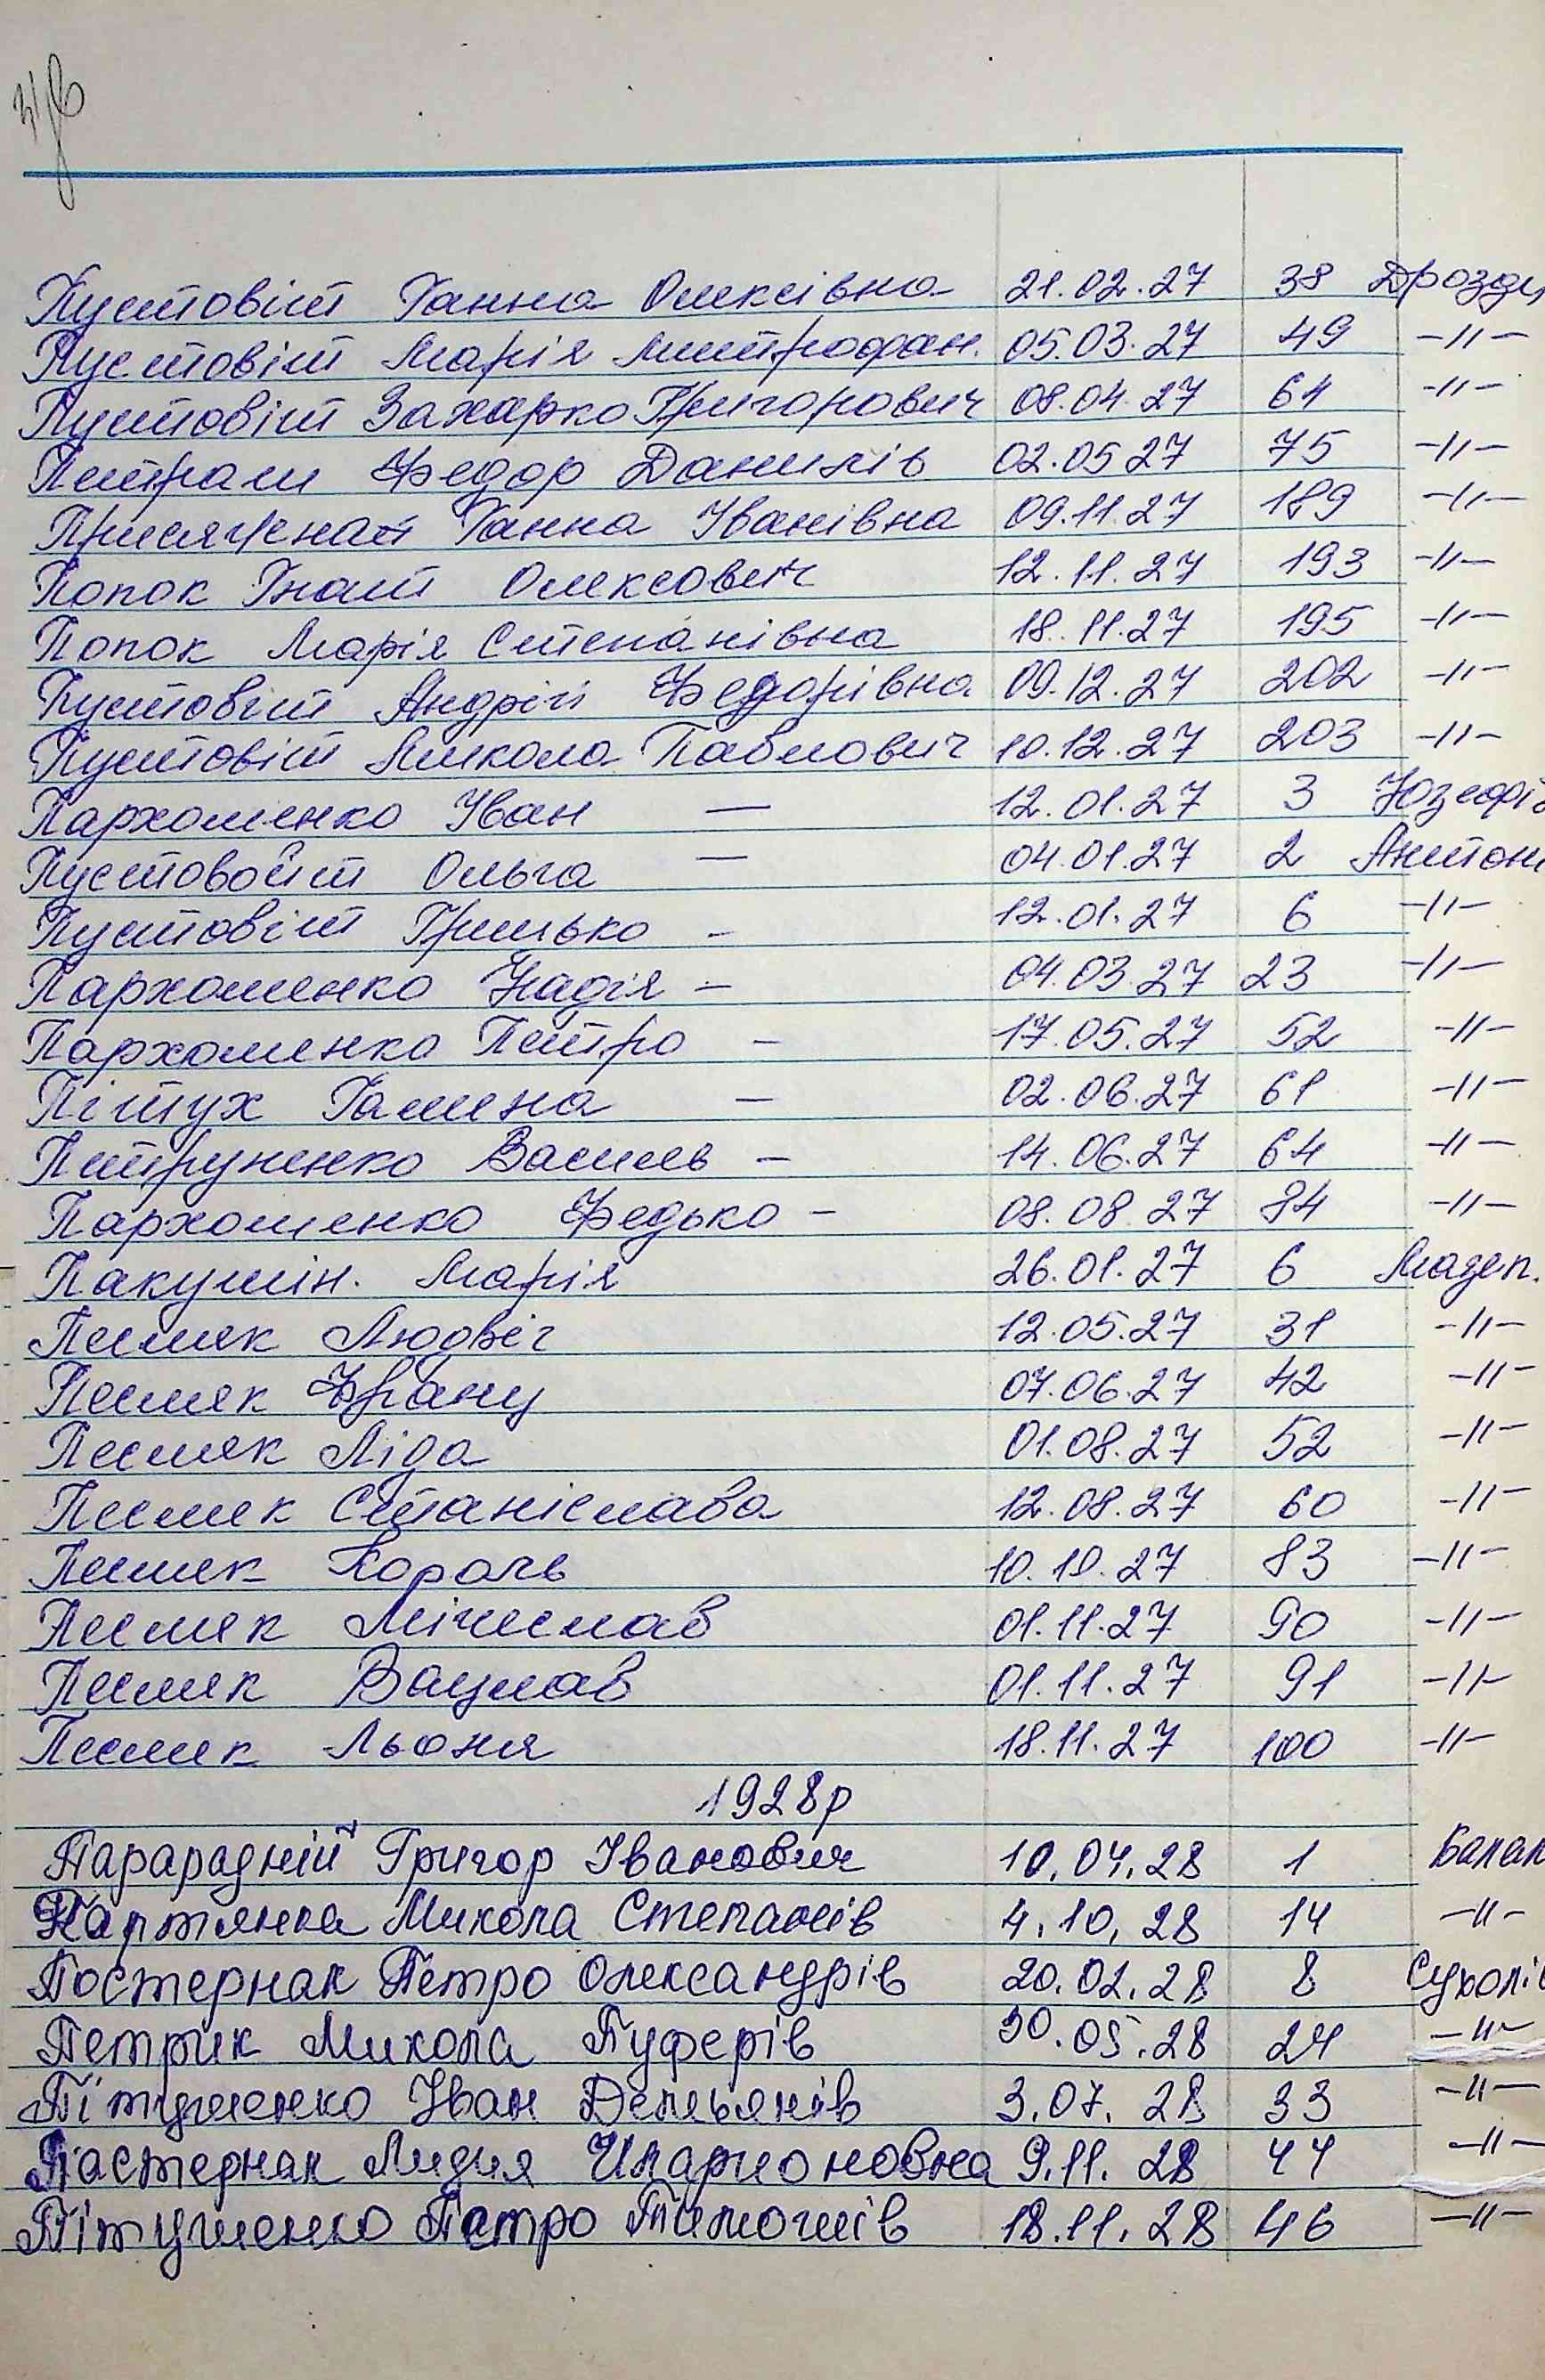 Пустовіт Ганна Олексівна 21.02.27 38 Дрозди
Пустовіт Марія Митрофан. 05.03.27 49 -//-
Пустовіт Захарко Григорович 08.04.27 61 -//-
Петраш Федор Данилів 02.05 27 75 -//-
Присяжная Ганна Іванівна 09.11.27 189 -//-
Попок Гнат Олексович 12.11.27 193 -//-
Попок Марія Степанівна 18.11.27 195 -//-
Пустовіт Андрій Федорівна 09.12.27 202 -//-
Пустовіт Микола Павлович 10.12.27 203 -//-
Пархоменко Іван — 12.01.27 3 Юзефів
Пустовойт Ольга — 04.01.27 2 Антон
Пустовіт Грицько - 12.01.27 6 -//-
Пархоменко Надія - 04.03.27 23 -//-
Пархоменко Петро - 17.05.27 52 -//-
Пітух Галина - 02.06.27 61 -//-
Петруненко Василь - 14.06.27 64 -//-
Пархоменко Федько - 08.08.27 84 -//-
Пакушін. Марія 26.01.27 6 Мазеп.
Песляк Людвіг 12.05.27 31 -//-
Песляк Франц 07.06.27 42 -//-
Песляк Ліда 01.08.27 52 -//-
Песляк Станіслава 12.08.27 60 -//-
Песляк Кароль 10.10.27 83 -//-
Песляк Мічеслав 01.11.27 90 -//-
Песляк Вацлав 01.11.27 91 -//-
Песляк Льоня 18.11.27 100 -//-
1928р
Парарадній Григор Іванович 10.04.28 1 Балак
Партянка Микола Степанів 4.10.28 14 -//-
Постернак Петро Олександрів 20.02.28 8 Сухолі
Петрик Микола Луферів 30.05.28 24 -//-
Пітушенко Іван Демьянів 3.07.28 33 -//-
Пастернак Лидия Иларионовна 9.11.28 44 -//-
Пітушенко Петро Тимошів 18.11.28 46 -//-